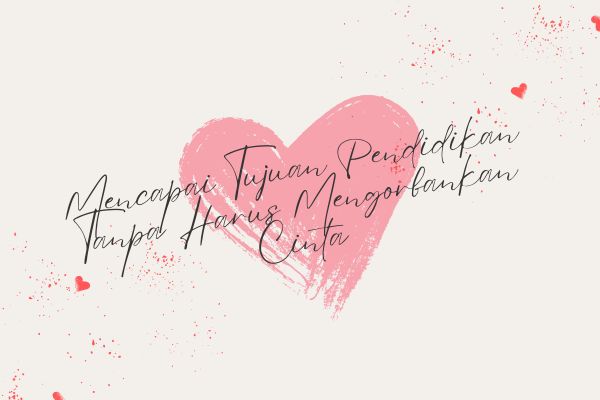 Mencapai Tujuan Pendidikan
Tanpa Harus Mengorbankan
Cinta